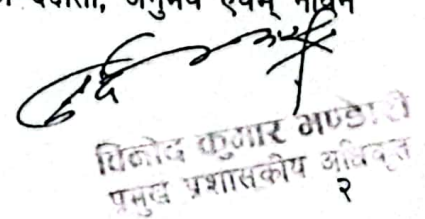 दक्षता, अनुभव एवम्
विनोद कुमार भण्डारी
प्रमुख प्रशासकीय अधिकृत
२